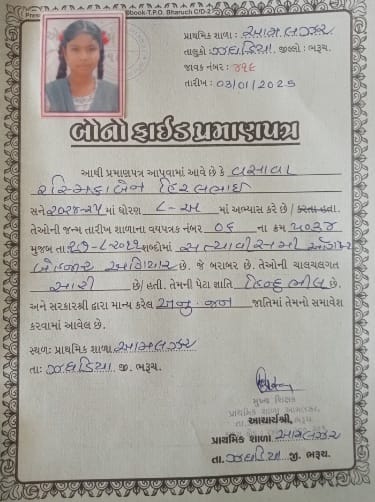 પ્રાથમિક શાળા : આમલઝર
તાલુકો : ઝઘડિયા જીલ્લો : ભરૂચ.
જાવક નંબર : ૪૧૯
તારીખ : 03/01/2025
બોનોફાઈડ પ્રમાણપત્ર
આથી પ્રમાણપત્ર આપવામાં આવે છે કે વસાવા
સને ૨૦૨૪-૨૫ માં ધોરણ ૮-અ માં અભ્યાસ કરે છે / કરતા હતા.
તેઓની જન્મ તારીખ શાળાના વયપત્રક નંબર ૦૬ ના ક્રમ
મુજબ તા શબ્દોમાં સત્યાવીસમી ઓગષ્ટ
બે હજાર અગિયાર છે. જે બરાબર છે. તેઓની ચાલચલગત
સારી છે/હતી. તેમની પેટા જ્ઞાતિ હિન્દુ ભીલ છે.
અને સરકારશ્રી દ્વારા માન્ય કરેલ અનુ. જન જાતિમાં તેમનો સમાવેશ
કરવામાં આવેલ છે.
સ્થળ: પ્રાથમિક શાળા આમલઝર
તા: ઝઘડિયા જી. ભરૂચ.
મુખ્ય શિક્ષક
આચાર્યશ્રી,
પ્રાથમિક શાળા આમલઝર
તા. ઝઘડિયા જી. ભરૂચ.